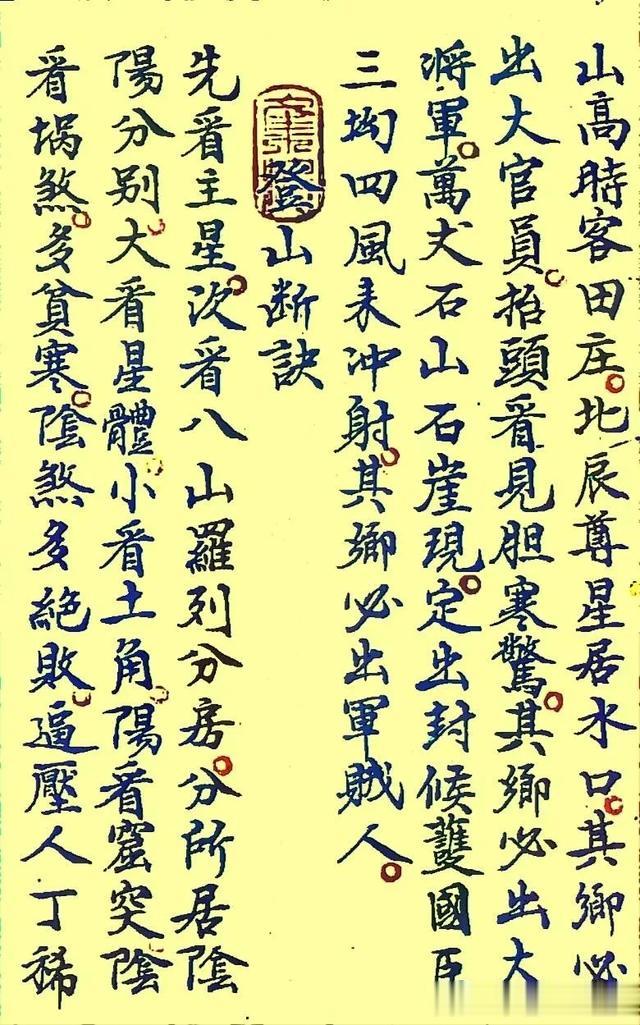 山高時客田庄北辰尊星居水口其鄉必
出大官員抬頭看見胆寒驚其鄉必出大
將軍萬丈石山石崖現定出封候護國臣
三坳四風来冲射其鄉必出軍賊人
登山断訣
先看主星次看八山羅列分房分所居陰
陽分别大看星體小看土角陽看窟突陰
看埚煞多貧寒陰煞多絶敗逼壓人丁稀